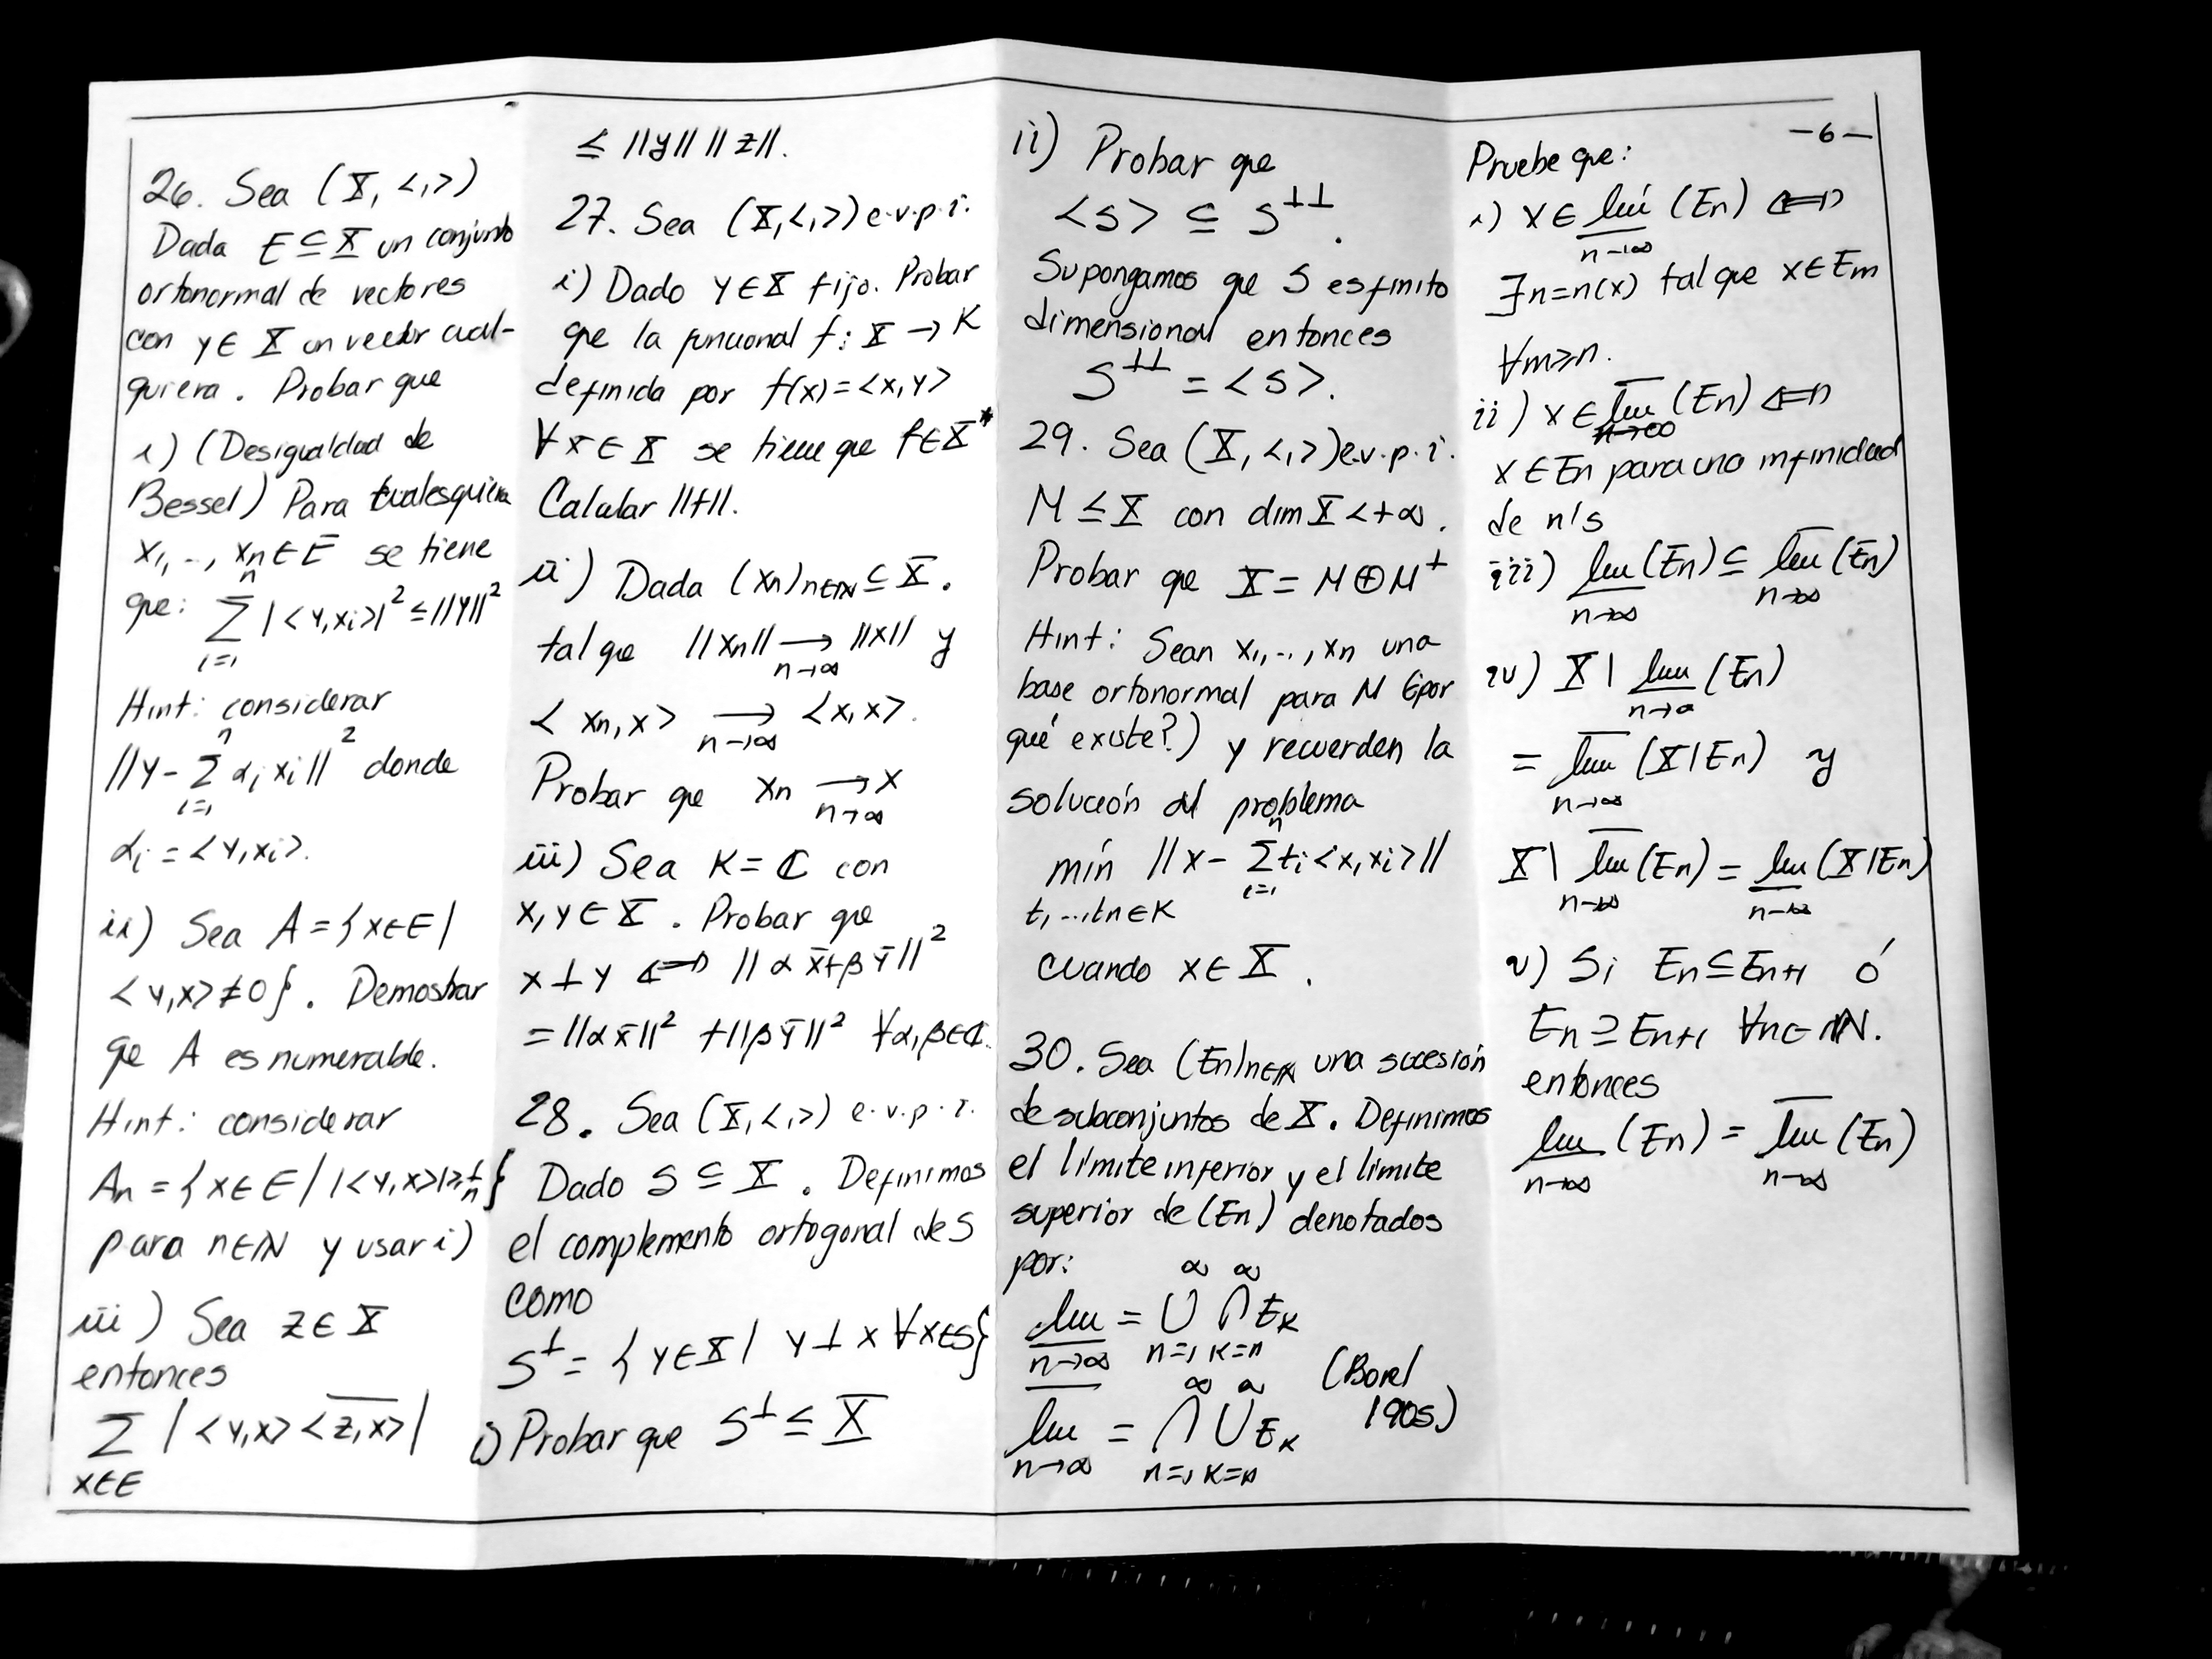 26. Sea (X, <,>)
Dada E ⊆ X un conjunto
ortonormal de vectores
con y ∈ X un vector cual-
quiera. Probar que
i) (Desigualdad de
Bessel) Para cualesquiera
x₁, .., xₙ ∈ E se tiene
que: Σ_{i=1}^{n} |<y,xᵢ>|² ≤ ||y||²
Hint: considerar
||y - Σ_{i=1}^{n} αᵢ xᵢ||² donde
αᵢ = <y,xᵢ>.
ii) Sea A = {x∈E |
<y,x> ≠ 0}. Demostrar
que A es numerable.
Hint: considerar
Aₙ = {x∈E / |<y,x>| ≥ 1/n}
para n∈ℕ y usar i)
iii) Sea z∈X
entonces
Σ_{x∈E} |<y,x> \overline{<z,x>}|
≤ ||y|| ||z||.
27. Sea (X,<,>) e.v.p.i.
i) Dado y∈X fijo. Probar
que la funcional f: X → K
definida por f(x) = <x,y>
∀x∈X se tiene que f∈X*
Calular ||f||.
ii) Dada (xₙ)ₙ∈ℕ ⊆ X.
tal que ||xₙ|| →_{n→∞} ||x|| y
<xₙ,x> →_{n→∞} <x,x>.
Probar que xₙ →_{n→∞} x
iii) Sea K = ℂ con
x,y ∈ X. Probar que
x ⊥ y ⟺ ||α x̄ + β ȳ||²
= ||α x̄||² + ||β ȳ||² ∀α,β∈ℂ.
28. Sea (X,<,>) e.v.p.i.
Dado S ⊆ X. Definimos
el complemento ortogonal de S
como
S^⊥ = {y∈X | y ⊥ x ∀x∈S}
i) Probar que S^⊥ ≤ X
ii) Probar que
<S> ⊆ S^⊥⊥.
Supongamos que S es finito
dimensional entonces
S^⊥⊥ = <S>.
29. Sea (X,<,>) e.v.p.i.
M ≤ X con dim X < +∞.
Probar que X = M ⊕ M^⊥
Hint: Sean x₁,..,xₙ una
base ortonormal para M (por
qué existe?) y recuerden la
solución del problema
mín ||x - Σ_{i=1}^{n} tᵢ <x,xᵢ>||
t₁...,tₙ∈K
cuando x∈X.
30. Sea (Eₙ)ₙ∈ℕ una sucesión
de subconjuntos de X. Definimos
el límite inferior y el límite
superior de (Eₙ) denotados
por:
\underline{lim}_{n→∞} = ∪_{n=1}^{∞} ∩_{k=n}^{∞} E_k
(Borel
1905)
\overline{lim}_{n→∞} = ∩_{n=1}^{∞} ∪_{k=n}^{∞} E_k
-6-
Pruebe que:
i) x ∈ \underline{lim}_{n→∞} (Eₙ) ⟺
∃n=n(x) tal que x∈Eₘ
∀m≥n.
ii) x ∈ \overline{lim}_{n→∞} (Eₙ) ⟺
x∈Eₙ para una infinidad
de n's
iii) \underline{lim}_{n→∞} (Eₙ) ⊆ \overline{lim}_{n→∞} (Eₙ)
iv) X \ \underline{lim}_{n→∞} (Eₙ)
= \overline{lim}_{n→∞} (X\Eₙ) y
X \ \overline{lim}_{n→∞} (Eₙ) = \underline{lim}_{n→∞} (X\Eₙ)
v) Si Eₙ ⊆ Eₙ₊₁ ó
Eₙ ⊇ Eₙ₊₁ ∀n∈ℕ.
entonces
\underline{lim}_{n→∞} (Eₙ) = \overline{lim}_{n→∞} (Eₙ)